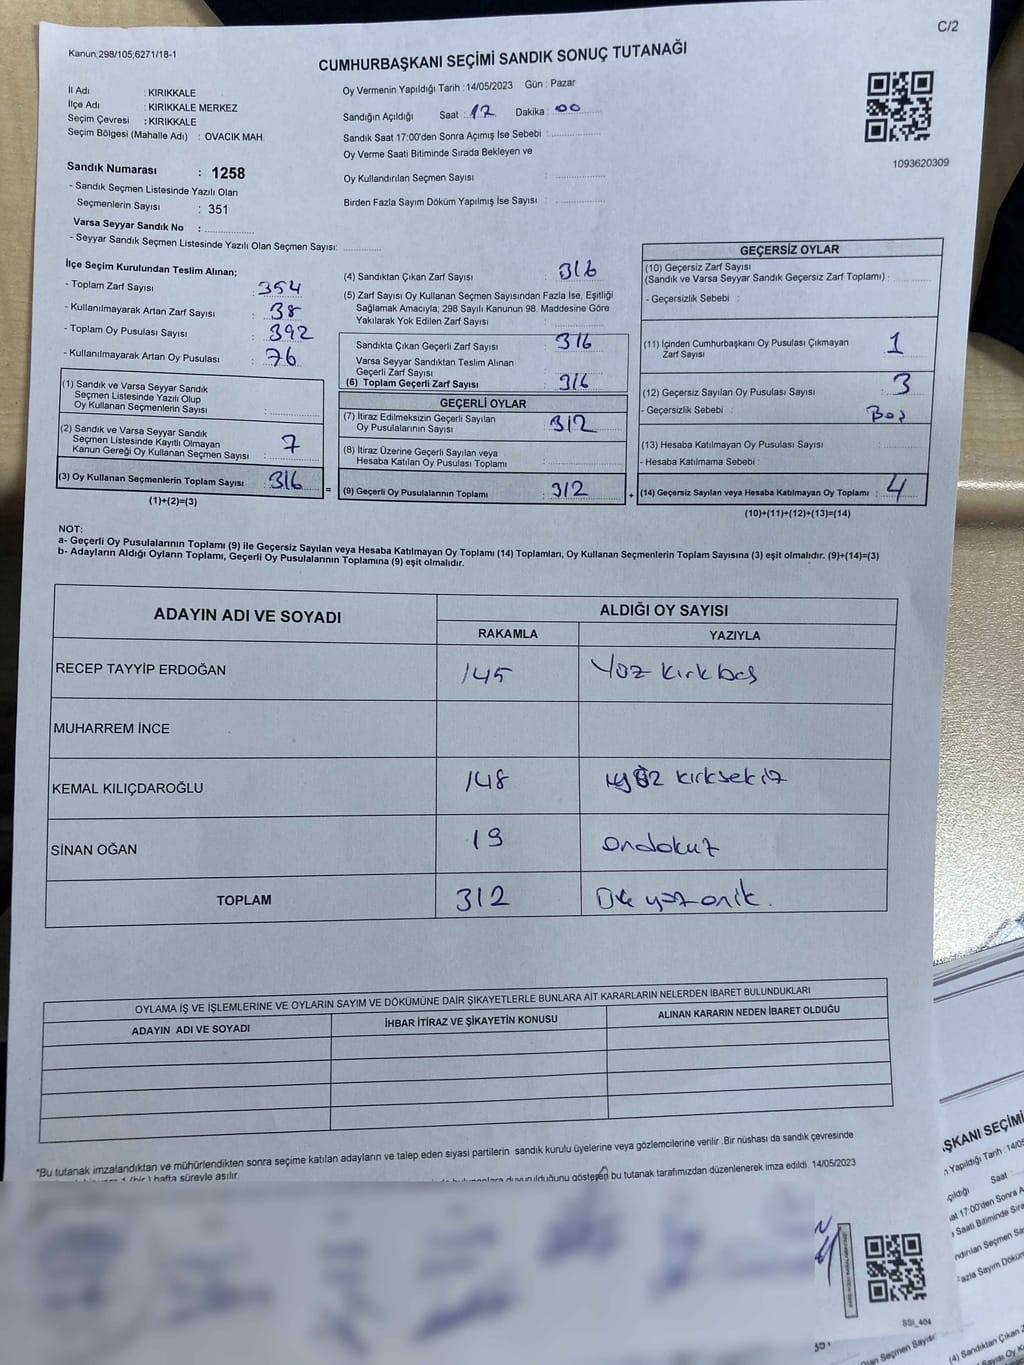 C/2
Kanun:298/105;6271/18-1
CUMHURBAŞKANI SEÇİMİ SANDIK SONUÇ TUTANAĞI
İl Adı : KIRIKKALE
İlçe Adı : KIRIKKALE MERKEZ
Seçim Çevresi : KIRIKKALE
Seçim Bölgesi (Mahalle Adı) : OVACIK MAH.
Sandık Numarası : 1258
- Sandık Seçmen Listesinde Yazılı Olan
Seçmenlerin Sayısı : 351
Varsa Seyyar Sandık No :
- Seyyar Sandık Seçmen Listesinde Yazılı Olan Seçmen Sayısı:
Oy Vermenin Yapıldığı Tarih : 14/05/2023 Gün : Pazar
Sandığın Açıldığı Saat : 17 Dakika : 00
Sandık Saat 17:00'den Sonra Açımış İse Sebebi :
Oy Verme Saati Bitiminde Sırada Bekleyen ve
Oy Kullandırılan Seçmen Sayısı :
Birden Fazla Sayım Döküm Yapılmış İse Sayısı :
1093620309
İlçe Seçim Kurulundan Teslim Alınan;
- Toplam Zarf Sayısı : 354
- Kullanılmayarak Artan Zarf Sayısı : 38
- Toplam Oy Pusulası Sayısı : 392
- Kullanılmayarak Artan Oy Pusulası : 76
(1) Sandık ve Varsa Seyyar Sandık
Seçmen Listesinde Yazılı Olup
Oy Kullanan Seçmenlerin Sayısı :
(2) Sandık ve Varsa Seyyar Sandık
Seçmen Listesinde Kayıtlı Olmayan
Kanun Gereği Oy Kullanan Seçmen Sayısı : 7
(3) Oy Kullanan Seçmenlerin Toplam Sayısı : 316
(1)+(2)=(3)
(4) Sandıktan Çıkan Zarf Sayısı : 316
(5) Zarf Sayısı Oy Kullanan Seçmen Sayısından Fazla İse, Eşitliği
Sağlamak Amacıyla; 298 Sayılı Kanunun 98. Maddesine Göre
Yakılarak Yok Edilen Zarf Sayısı :
Sandıkta Çıkan Geçerli Zarf Sayısı : 316
Varsa Seyyar Sandıktan Teslim Alınan
Geçerli Zarf Sayısı :
(6) Toplam Geçerli Zarf Sayısı : 316
GEÇERLİ OYLAR
(7) İtiraz Edilmeksizin Geçerli Sayılan
Oy Pusulalarının Sayısı : 312
(8) İtiraz Üzerine Geçerli Sayılan veya
Hesaba Katılan Oy Pusulası Toplamı :
= (9) Geçerli Oy Pusulalarının Toplamı : 312
GEÇERSİZ OYLAR
(10) Geçersiz Zarf Sayısı
(Sandık ve Varsa Seyyar Sandık Geçersiz Zarf Toplamı) :
- Geçersizlik Sebebi :
(11) İçinden Cumhurbaşkanı Oy Pusulası Çıkmayan
Zarf Sayısı : 1
(12) Geçersiz Sayılan Oy Pusulası Sayısı : 3
- Geçersizlik Sebebi : Boş
(13) Hesaba Katılmayan Oy Pusulası Sayısı :
- Hesaba Katılmama Sebebi :
+ (14) Geçersiz Sayılan veya Hesaba Katılmayan Oy Toplamı : 4
(10)+(11)+(12)+(13)=(14)
NOT:
a- Geçerli Oy Pusulalarının Toplamı (9) ile Geçersiz Sayılan veya Hesaba Katılmayan Oy Toplamı (14) Toplamları, Oy Kullanan Seçmenlerin Toplam Sayısına (3) eşit olmalıdır. (9)+(14)=(3)
b- Adayların Aldığı Oyların Toplamı, Geçerli Oy Pusulalarının Toplamına (9) eşit olmalıdır.
ADAYIN ADI VE SOYADI ALDIĞI OY SAYISI
RAKAMLA YAZIYLA
RECEP TAYYİP ERDOĞAN 145 Yüz kırkbeş
MUHARREM İNCE
KEMAL KILIÇDAROĞLU 148 yüz kırksekiz
SİNAN OĞAN 19 ondokuz
TOPLAM 312 Üç yüz onik.
OYLAMA İŞ VE İŞLEMLERİNE VE OYLARIN SAYIM VE DÖKÜMÜNE DAİR ŞİKAYETLERLE BUNLARA AİT KARARLARIN NELERDEN İBARET BULUNDUKLARI
ADAYIN ADI VE SOYADI İHBAR İTİRAZ VE ŞİKAYETİN KONUSU ALINAN KARARIN NEDEN İBARET OLDUĞU
"Bu tutanak imzalandıktan ve mühürlendikten sonra seçime katılan adayların ve talep eden siyasi partilerin sandık kurulu üyelerine veya gözlemcilerine verilir .Bir nüshası da sandık çevresinde
1 (bir) hafta süreyle asılır.
duyurulduğunu gösteren bu tutanak tarafımızdan düzenlenerek imza edildi. 14/05/2023
SSI_404
ŞKANI SEÇİMİ
n Yapıldığı Tarih :14/05
çıldığı Saat :
at 17:00'den Sonra A
Saati Bitiminde Sıra
ndırılan Seçmen Sa
Fazla Sayım Döküm
lan Seçmen Sayısı:
(4) Sandıktan Çıkan Z